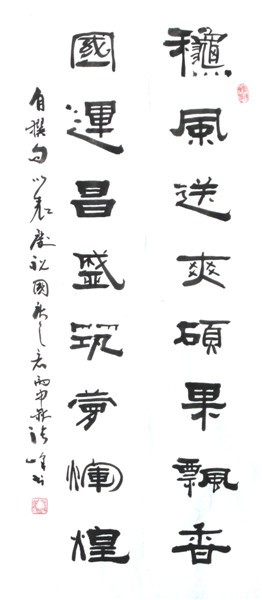 龝風送爽碩果飄香
國運昌盛筑夢煇煌
自撰句以表慶祝國慶之意丙申秋